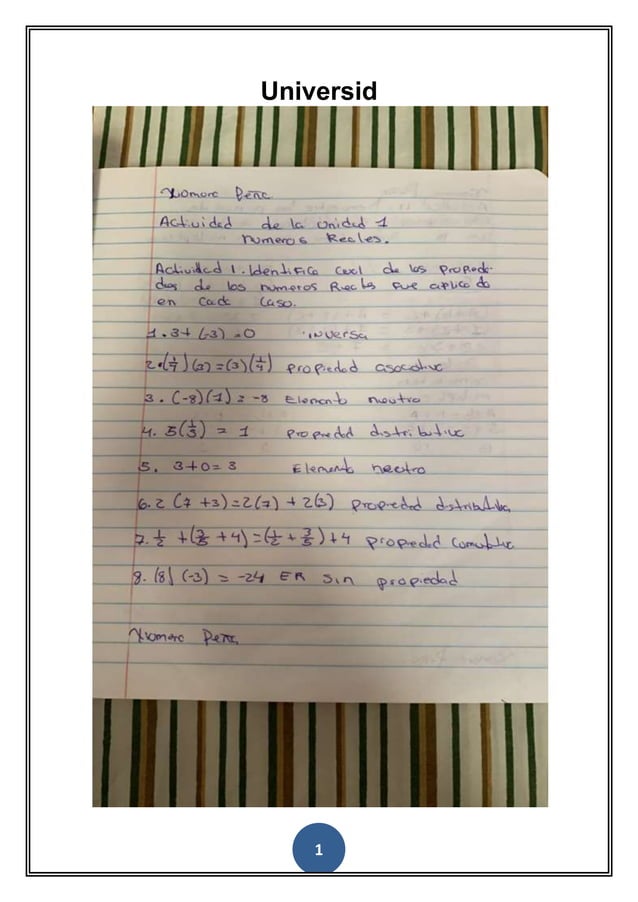 Universid
Xiomara Peña
Actividad de la Unidad 1
numeros Reales.
Actividad 1. Identifica cual de las Propieda-
des de los numeros Reales fue aplicada
en cada caso.
1. 3+(-3)=0 inversa
2. (1/4)(3)=(3)(1/4) propiedad asocativa
3. (-8)(1)=-8 Elemento neutro
4. 5(1/5) = 1 propiedad distributiva
5. 3+0=3 Elemento neutro
6. 2(7+3)=2(7)+2(3) propiedad distributiva
7. 1/2 +(3/5+4)=(1/2+3/5)+4 propiedad
8. (8)(-3) = -24 ER sin propiedad
Xiomara Peña
1